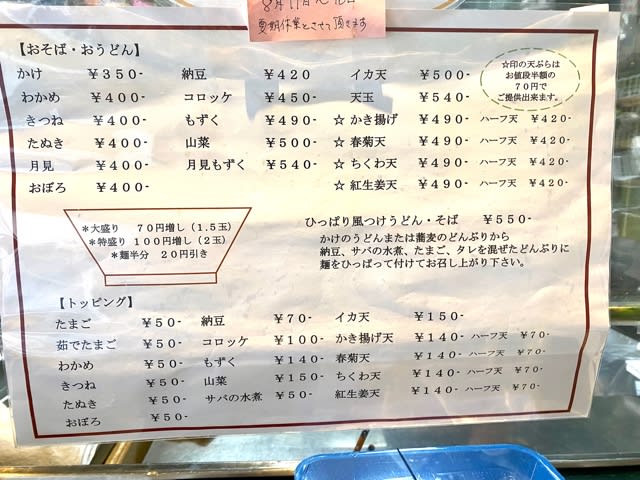 夏期休業とさせて頂きます
【おそば・おうどん】
かけ ￥350- 納豆 ￥420 イカ天 ￥500-
わかめ ￥400- コロッケ ￥450- 天玉 ￥540-
きつね ￥400- もずく ￥490- ☆ かき揚げ ￥490- ハーフ天 ￥420-
たぬき ￥400- 山菜 ￥500- ☆ 春菊天 ￥490- ハーフ天 ￥420-
月見 ￥400- 月見もずく ￥540- ☆ ちくわ天 ￥490- ハーフ天 ￥420-
おぼろ ￥400- ☆ 紅生姜天 ￥490- ハーフ天 ￥420-
☆印の天ぷらは
お値段半額の
70円で
ご提供出来ます。
＊大盛り 70円増し（1.5玉）
＊特盛り 100円増し（2玉）
＊麺半分 20円引き
ひっぱり風つけうどん・そば ￥550-
かけのうどんまたは蕎麦のどんぶりから
納豆、サバの水煮、たまご、タレを混ぜたどんぶりに
麺をひっぱって付けてお召し上がり下さい。
【トッピング】
たまご ￥50- 納豆 ￥70- イカ天 ￥150-
茹でたまご ￥50- コロッケ ￥100- かき揚げ天 ￥140- ハーフ天 ￥70-
わかめ ￥50- もずく ￥140- 春菊天 ￥140- ハーフ天 ￥70-
きつね ￥50- 山菜 ￥150- ちくわ天 ￥140- ハーフ天 ￥70-
たぬき ￥50- サバの水煮 ￥50- 紅生姜天 ￥140- ハーフ天 ￥70-
おぼろ ￥50-